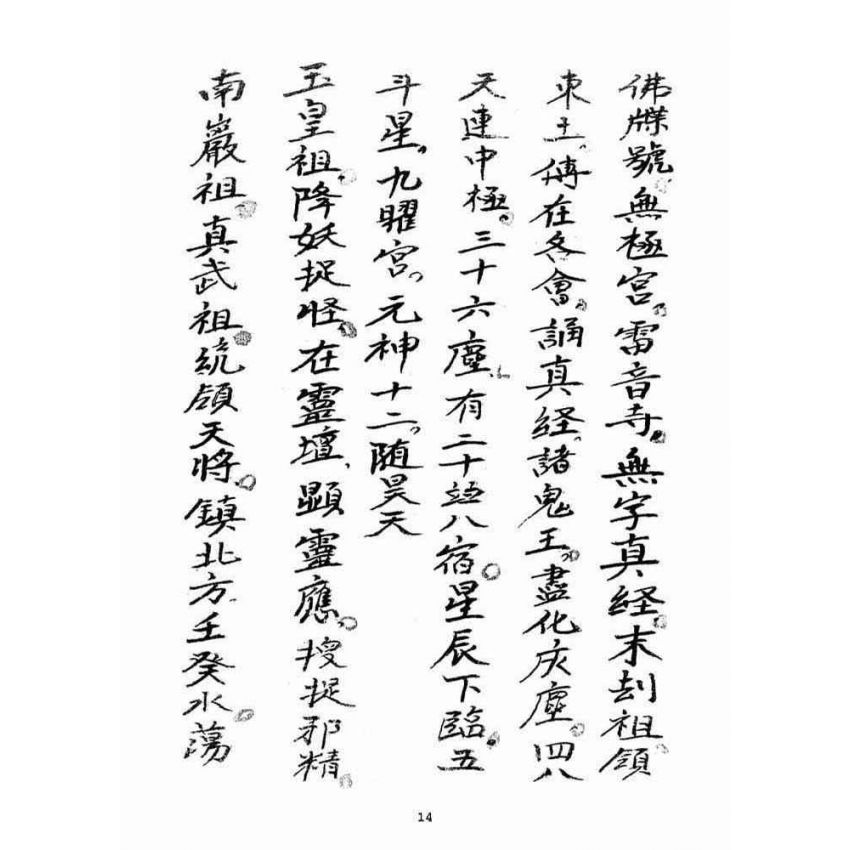 佛牒號。無極宮。雷音寺。無字真經。末刦祖領
東土。傳在各會。誦真経。諸鬼王。盡化灰塵。四八
天連中極。三十六塵。有二十八宿。星辰下臨。五
斗星。九曜宮。元神十二。随昊天
玉皇祖。降妖捉怪。在靈壇、顯靈應。搜捉邪精。
南巖祖。真武祖。統領天將。鎮北方。壬癸水。蕩
14